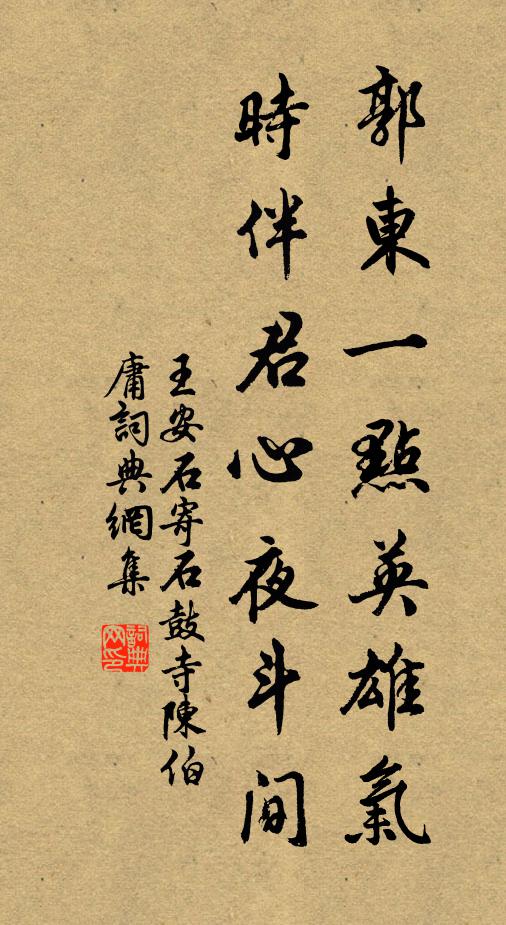 郭東一點英雄氣
時伴君心夜斗间
王安石寄石鼓寺陳伯
庸詞典網集
詞典
网印